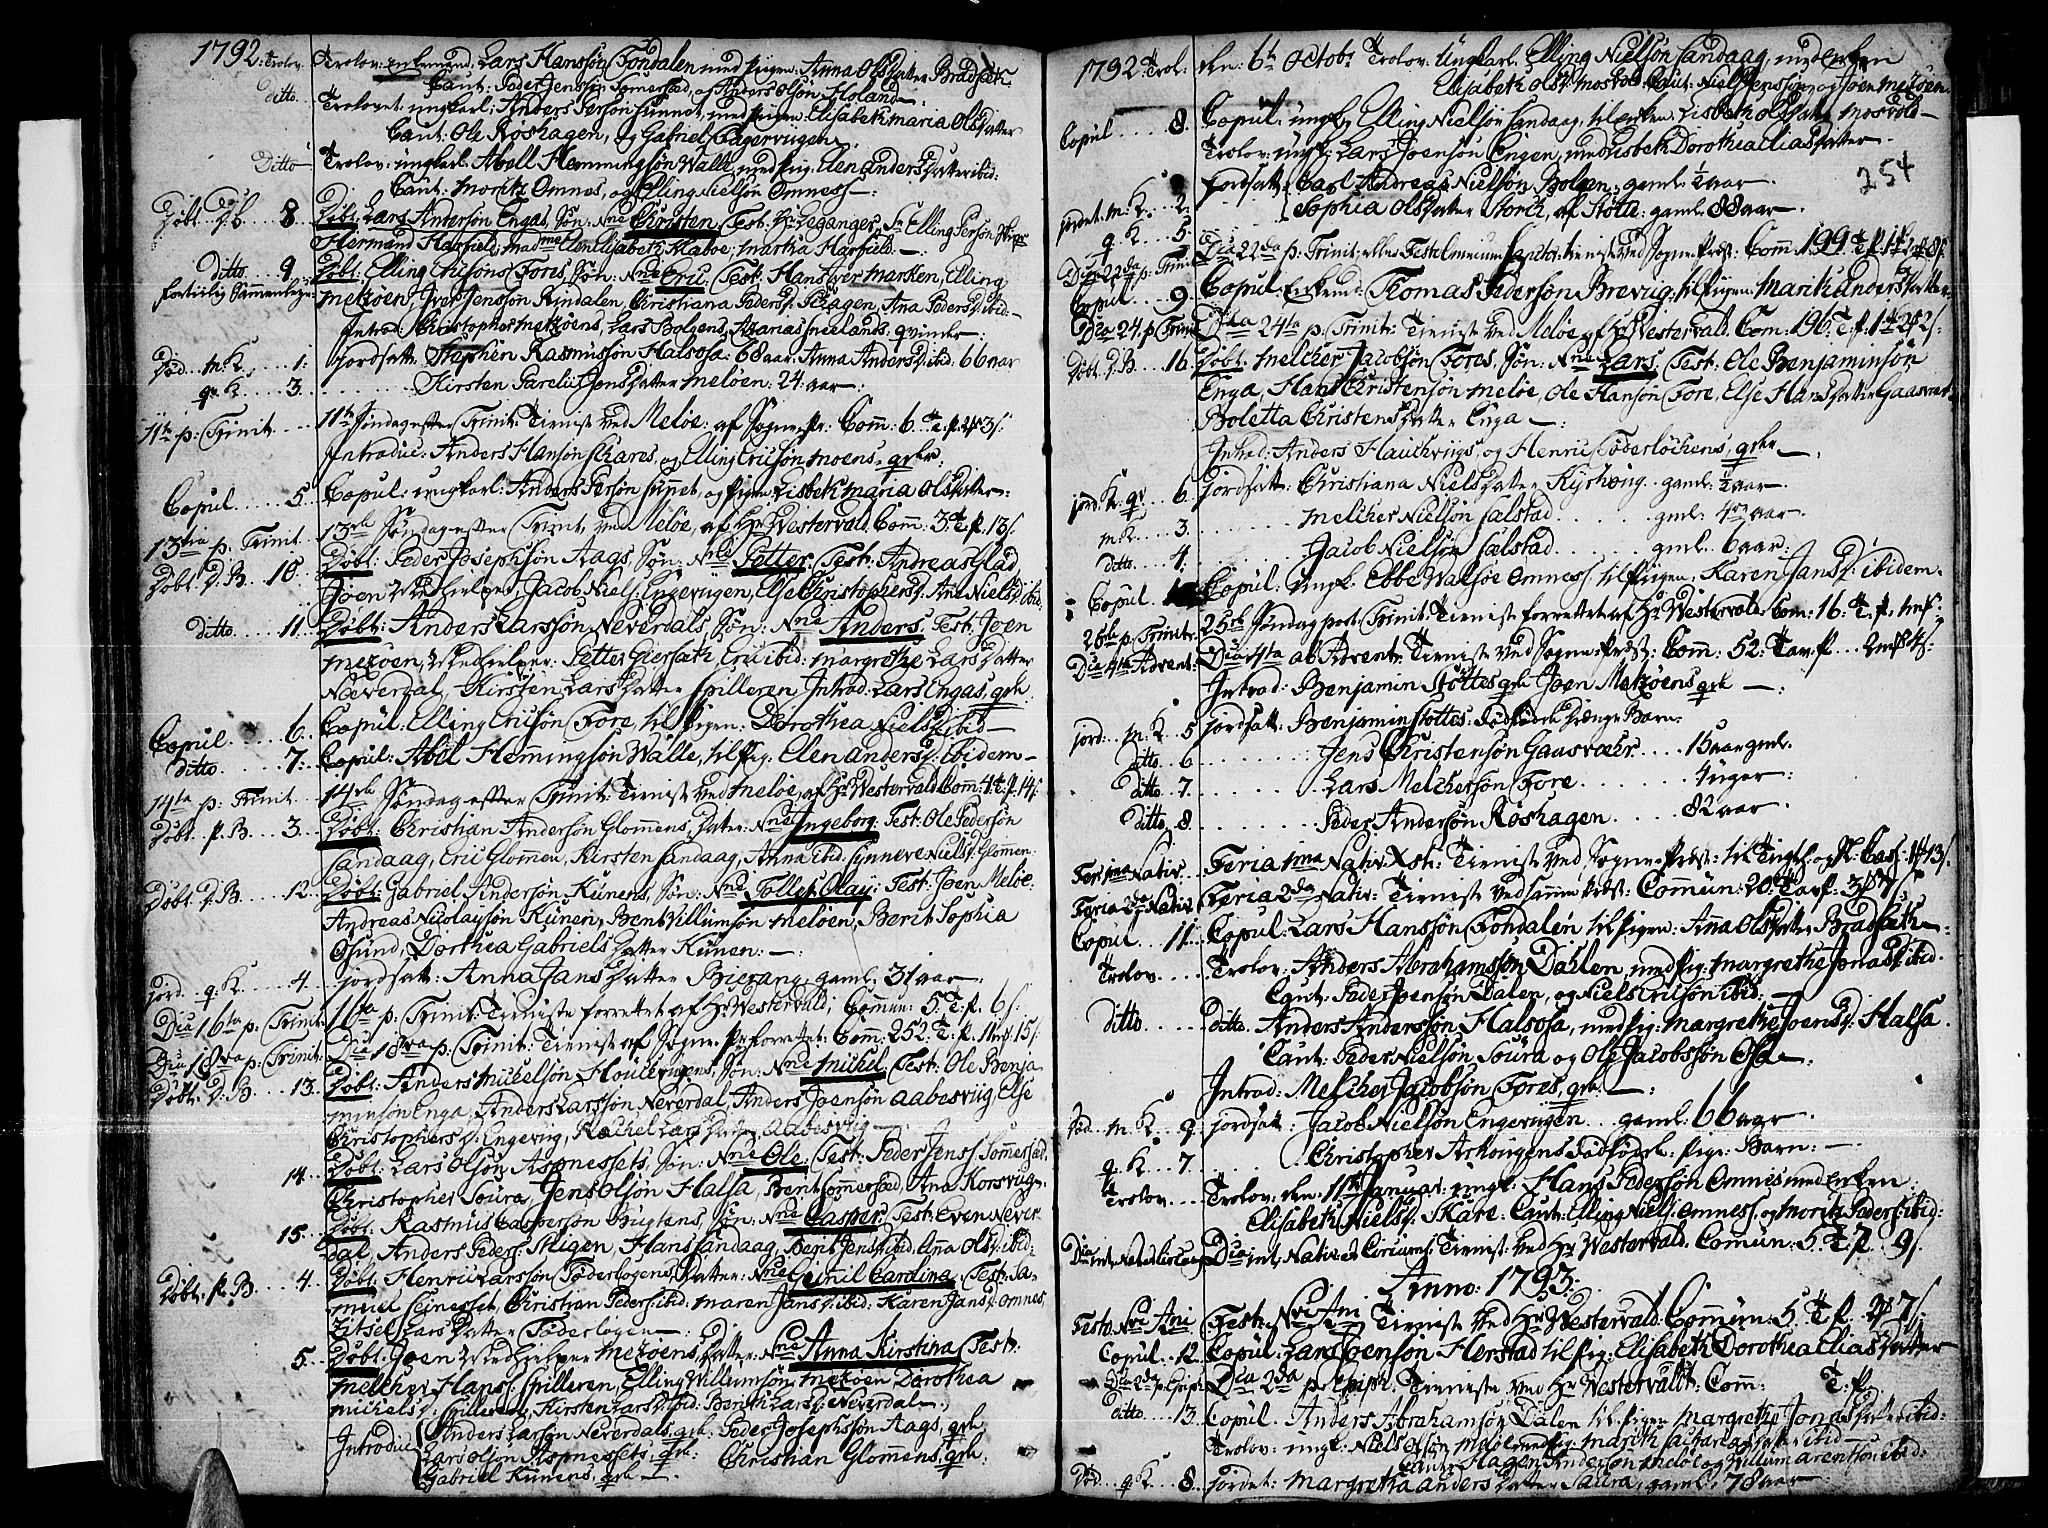 1792. Trolov. Trolov: enkemand: Lars Hanssøn Fondalen med pigen: Anna Olsdatter Bradsæth.
Caut: Peder Jensen Somersæd, og Anders Olsøn Holand
ditto. Trolovet: ungkarl: Anders Persøn Sunnet, med pigen: Elisabeth Maria Olsdatter
Caut: Ole Roshagen, og Gabriel Engervigen
Ditto Trolov: ungkarl: Abell Hemmingsøn Walle, med pig: Elen Andersdatter ibid:
Caut: Moritz Omnes, og Elling Nielsøn Omness:
Døbt. D. B. 8. Døbt: Lars Andersøn Engas, Søn: Nne Christen, Test: Hr Leganger, Sr Elling Persøn
Hermand Harfield, Madme Elen Elisabeth Klaboe, Martha Harfield:
Ditto 9. Døbt: Elling Erichsøns Fores, Søn: Nne Eric: Test: Hans Over Marken, Elling
fortiilig Sammenleye: Metzøen, Iver Jenssøn Rendalen, Christiana Pedersd: Skagen, Ana Pedersd: ibid:
Introd: Christopher Metzøens, Lars Bolgens, Azarias Meelands qvinder
Død. m K. 1: Jordfatt: Stephen Rasmussøn Halsosa 68 aar: Anna Andersd: ibid: 66 aar
q. K. 3. Kirsten Parelii Jensdatter Meløen. 24. aar:
11te p: Trinit. 11te Søndag efter Trinit: Tieniste ved Meløe: af Sogne Pr: Com: 6.
Introduc: Anders Hansøn Skares, og Elling Ericsøn Moens, qvkr.
Copul. 5. Copul: ungkarl: Anders Persøn Sunnet, og Pigen Lisbeth Maria Olsdatter:
13tia p: Trinit. 13de Søndag efter Trinit: ved Meløe, af Hr Westervald. Com: 3. T. f. 13 s.
Døbt. D: B. 10. Døbt: Peder Josephsøn Aags, Søn: Nne Petter: Test: Andreas Glad,
Joen Medhielper, Jacob Niels: Engevigen, Else Christophersd: Ane Nielsd: ibid.
Ditto. 11. Døbt: Anders Larssøn Neverdals, Søn: Nne Anders. Test: Joen
Metzøen, Medhielper: Petter Giersath, Eric ibid: Margrethe Larsdatter
Næverdal, Kirsten Larsdatter Spilleren, Introd: Lars Engas, qvk.
Copul. 6. Copul: Elling Ericsøn Fore, til Pigen: Dorothea Nielsd: ibid
ditto. 7. Copul: Abel Hemmingsøn Walle, til Pig: Elen Andersd: ibidem
14ta p: Trinit 14de Søndag efter Trinit: Tienist ved Meløe, af Hr Westervald Com: 4. T. f. 14 s.
Døbt. P. B. 3. Døbt: Christian Andersøn Glomens, Datter: Nne Ingeborg: Test: Ole Pedersøn
Sandaag, Eric Glomen, Kirsten Sandaag, Anna ibid: Synneve Nielsd: Glomen.
Døbt. D. B. 12. Døbt: Gabriel Andersøn Kunens, Søn: Nne Tolles Olay: Test: Joen Meløe:
Andreas Nicolaysøn Kunen, Bent Villumsøn Meløen, Berit Sophia
Osund, Dorthea Gabrielsdatter Kunen:
jord. q. K. 4. Jordfatt: Anna Jansdatter Bierang, gaml. 31 aar
Dia 16ta p: Trinit. 16ta p: Trinit: Tieniste forrettet af Hr Westervald, Commun: 5. T. f. 6 s.
Dia 18va p: Trinit: Dia 18va p: Trinit: Tieniste af Sogne Pr forrettet: Com: 252. T. f. 15 s.
Døbt. D: B. 13. Døbt: Anders Michelsøn Houcvigens, Søn: Nne Michel: Test: Ole Benja-
minsøn Enga, Anders Larssøn Neverdal, Anders Joensøn Aabesviig Else
Christophersd: Engevig, Rachel Larsdatter Aabesviig
14. Døbt: Lars Olsøn Aspnessets, Søn: Nne Ole: Test: Peder Jens: Somersæd,
Christopher Soura, Jens Olsøn Halsa, Bent Sommersæd, Ana Korsviig
15. Døbt: Rasmus Caspersøn Bugtens, Søn: Nne Casper. Test: Even Never-
dal, Anders Peders: Stigen, Hans Sandaag, Berit Jensd: ibid: Anna Olsd: ibid:
Døbt. P. B. 4. Døbt: Henric Larssøn Føderlogens, Datter: Nne Geinil Cardina. Test: Sa-
muel Seinesset, Christian Peders: ibid: Maren Jansd: ibid. Karen Jansd: Omnes,
Zitsel Larsdatter Føderlogen
5. Døbt: Joen Medhielper Metzøens, Datter: Nne Anna Kirstina, Test:
Melcher Hans: Spilleren, Elling Willumsøn Metzøen, Dorothea
Michelsd: Spilleren, Kirsten Larsd: ibid: Berith Larsd: Neverdalen.
Introduc: Anders Larssøn Neverdals, qvk. Peder Josephssøn Aags, qvk
Lars Olsøn Aspnessets, qvk. Christian Glomens, qvk.
Gabriel Kunens, qvk.
1792. Trol: den: 6te Octobr Trolov. Ungkarl. Elling Nielsøn Sandaag, med Enken
Elisabeth Olsd: Mosvold. Caut: Niels Jenssøn, og Joen Metzøen.
Copul. 8. Copul: ungk. Elling Nielsøn Sandaag, til enken: Lisbeth Olsdatter Mosvold
Trolov: ungk: Lars Joensøn Engen, med Lisbeth Dorothea Eliasdatter.
254
jordet. m. K. 2. Jordfatt: Carl Andreas Nielsøn Bolgen: gaml. ½ aar
q. K. 5. Sophia Olsdatter Storch, af Støtt: gaml: 88 aar.
Dia 22da p: Trinit Dia 22da p: Trinit: eller Festo Omnium Sanctor: tienist ved Sogne Præst: Com: 199
Copul. 9. Copul: enkemd: Thomas Pedersøn Brevig, til Pigen: Marith Andersdatter.
Dia 24. p: Trinit Dia 24ta p: Trinit: Tienist ved Meløe af Hr Westervald. Com: 196. T. f.
Døbt. D. B. 16. Døbt: Melcher Jacobsøn Fores, Søn: Nne Lars: Test: Ole Benjaminsøn
Enga, Hans Christensøn Meløe, Ole Hansøn Fore, Else Hansdatter Gaasvær
Boletta Christensdatter Enga:
Introd: Anders Hauchvigs, og Henric Føderløchens, qvkr.
jord. K. qv. 6. Jordfatt: Christiana Nielsdatter Kyshoug. gaml: ½ aar.
m K. 3. Melcher Nielsøn Sælstad gml: aar.
ditto 4. Jacob Nielsøn Sælstad gml: 6 aar:
Copul Copul: Ungk. Ebbe Walsøe Omness: til Pigen: Karen Jansd: ibidem.
25de p: Trinitr. 25de Søndag post: Trinit: Tienist forrettet af Hr Westervald. Com: 16. T. f.
Dia 4ta Advent: Dia 4ta ab Advent: Tieniste ved Sogne Præst: Com: 52: T
Introd: Benjamin Støttes qvk Joen Metzøens qvk
jord: m. K 5 Jordfatt: Benjamin Støttes: dødfødde Drænge Barn:
ditto 6 Jens Christensøn Gaasvæhr 15 aar gml.
ditto 7. Lars Melchersøn Fore 4 uger:
Ditto 8. Peder Andersøn Roshagen 82 aar
Fer 1ma Nativ. Feria 1ma Nativ: Xsti: Tienist ved Sogne Præst:
Feria 2da Nativ Feria 2da Nativ: Tieniste ved samme Præst: Commun: 20.
Copul 11. Copul: Lars Hanssøn Fondalen til Pigen: Anna Olsdatter Bradsæth
Trolov. Trolov: Anders Abrahamssøn Dahlen, med Pig: Margrethe Jonasd: ibid.
Caut: Peder Joensøn Dalen, og Niels Ericsøn ibid:
ditto ditto. Anders Anderssøn Halsosa, med Pig: Margrethe Joensd: Halsa.
Caut: Peder Nielsøn Soura og Ole Jacobssøn Osa
Introd: Melcher Jacobsøn Fores, qvk.
Død. m. K. 9 Jordfatt: Jacob Nielsøn Engevigen. gaml. 66 aar
q. K. 7. Christopher Arhougens Dødfødde: Pige: Barn:
Trolov Trolov: den: 11te Januar: ungk: Hans Pedersøn Omnes med enken
Elisabeth Nielsd: Skare. Caut: Elling Niels: Omness. og Moritz Peders: ibid:
Dia int. Nat. Dia int. Nativ. et Circums: Tienist: ved Hr Westervald. Comun: 5. T. f. 9 s.
Anno: 1793:
Festo Nvi Ani Fest: Nvi Ani Tieniste ved Hr Westervald. Comun: 5 T. f. 7 s.
Copul. 12. Copul: Lars Joensøn Herstad til Pig: Elisabeth Dorothea Eliasdatter
Dia 2da p: Epiph. Dia 2da p: Epiph: Tienniste ved Hr Westervald: Com: T: f.
ditto 13. Copul. Anders Abrahamsøn Dalen til Pigen Margrethe Jonasdatter ibid:
Trolov: ungk: Niels Olsøn Meløe med Pig: Marith Sachariasdatter ibid
Caut: Hagen Andersøn Meløe og Willum Arentsøn ibid:
Død. q K. 8. Jordet: Margretha Andersdatter Saura, gaml: 78 aar